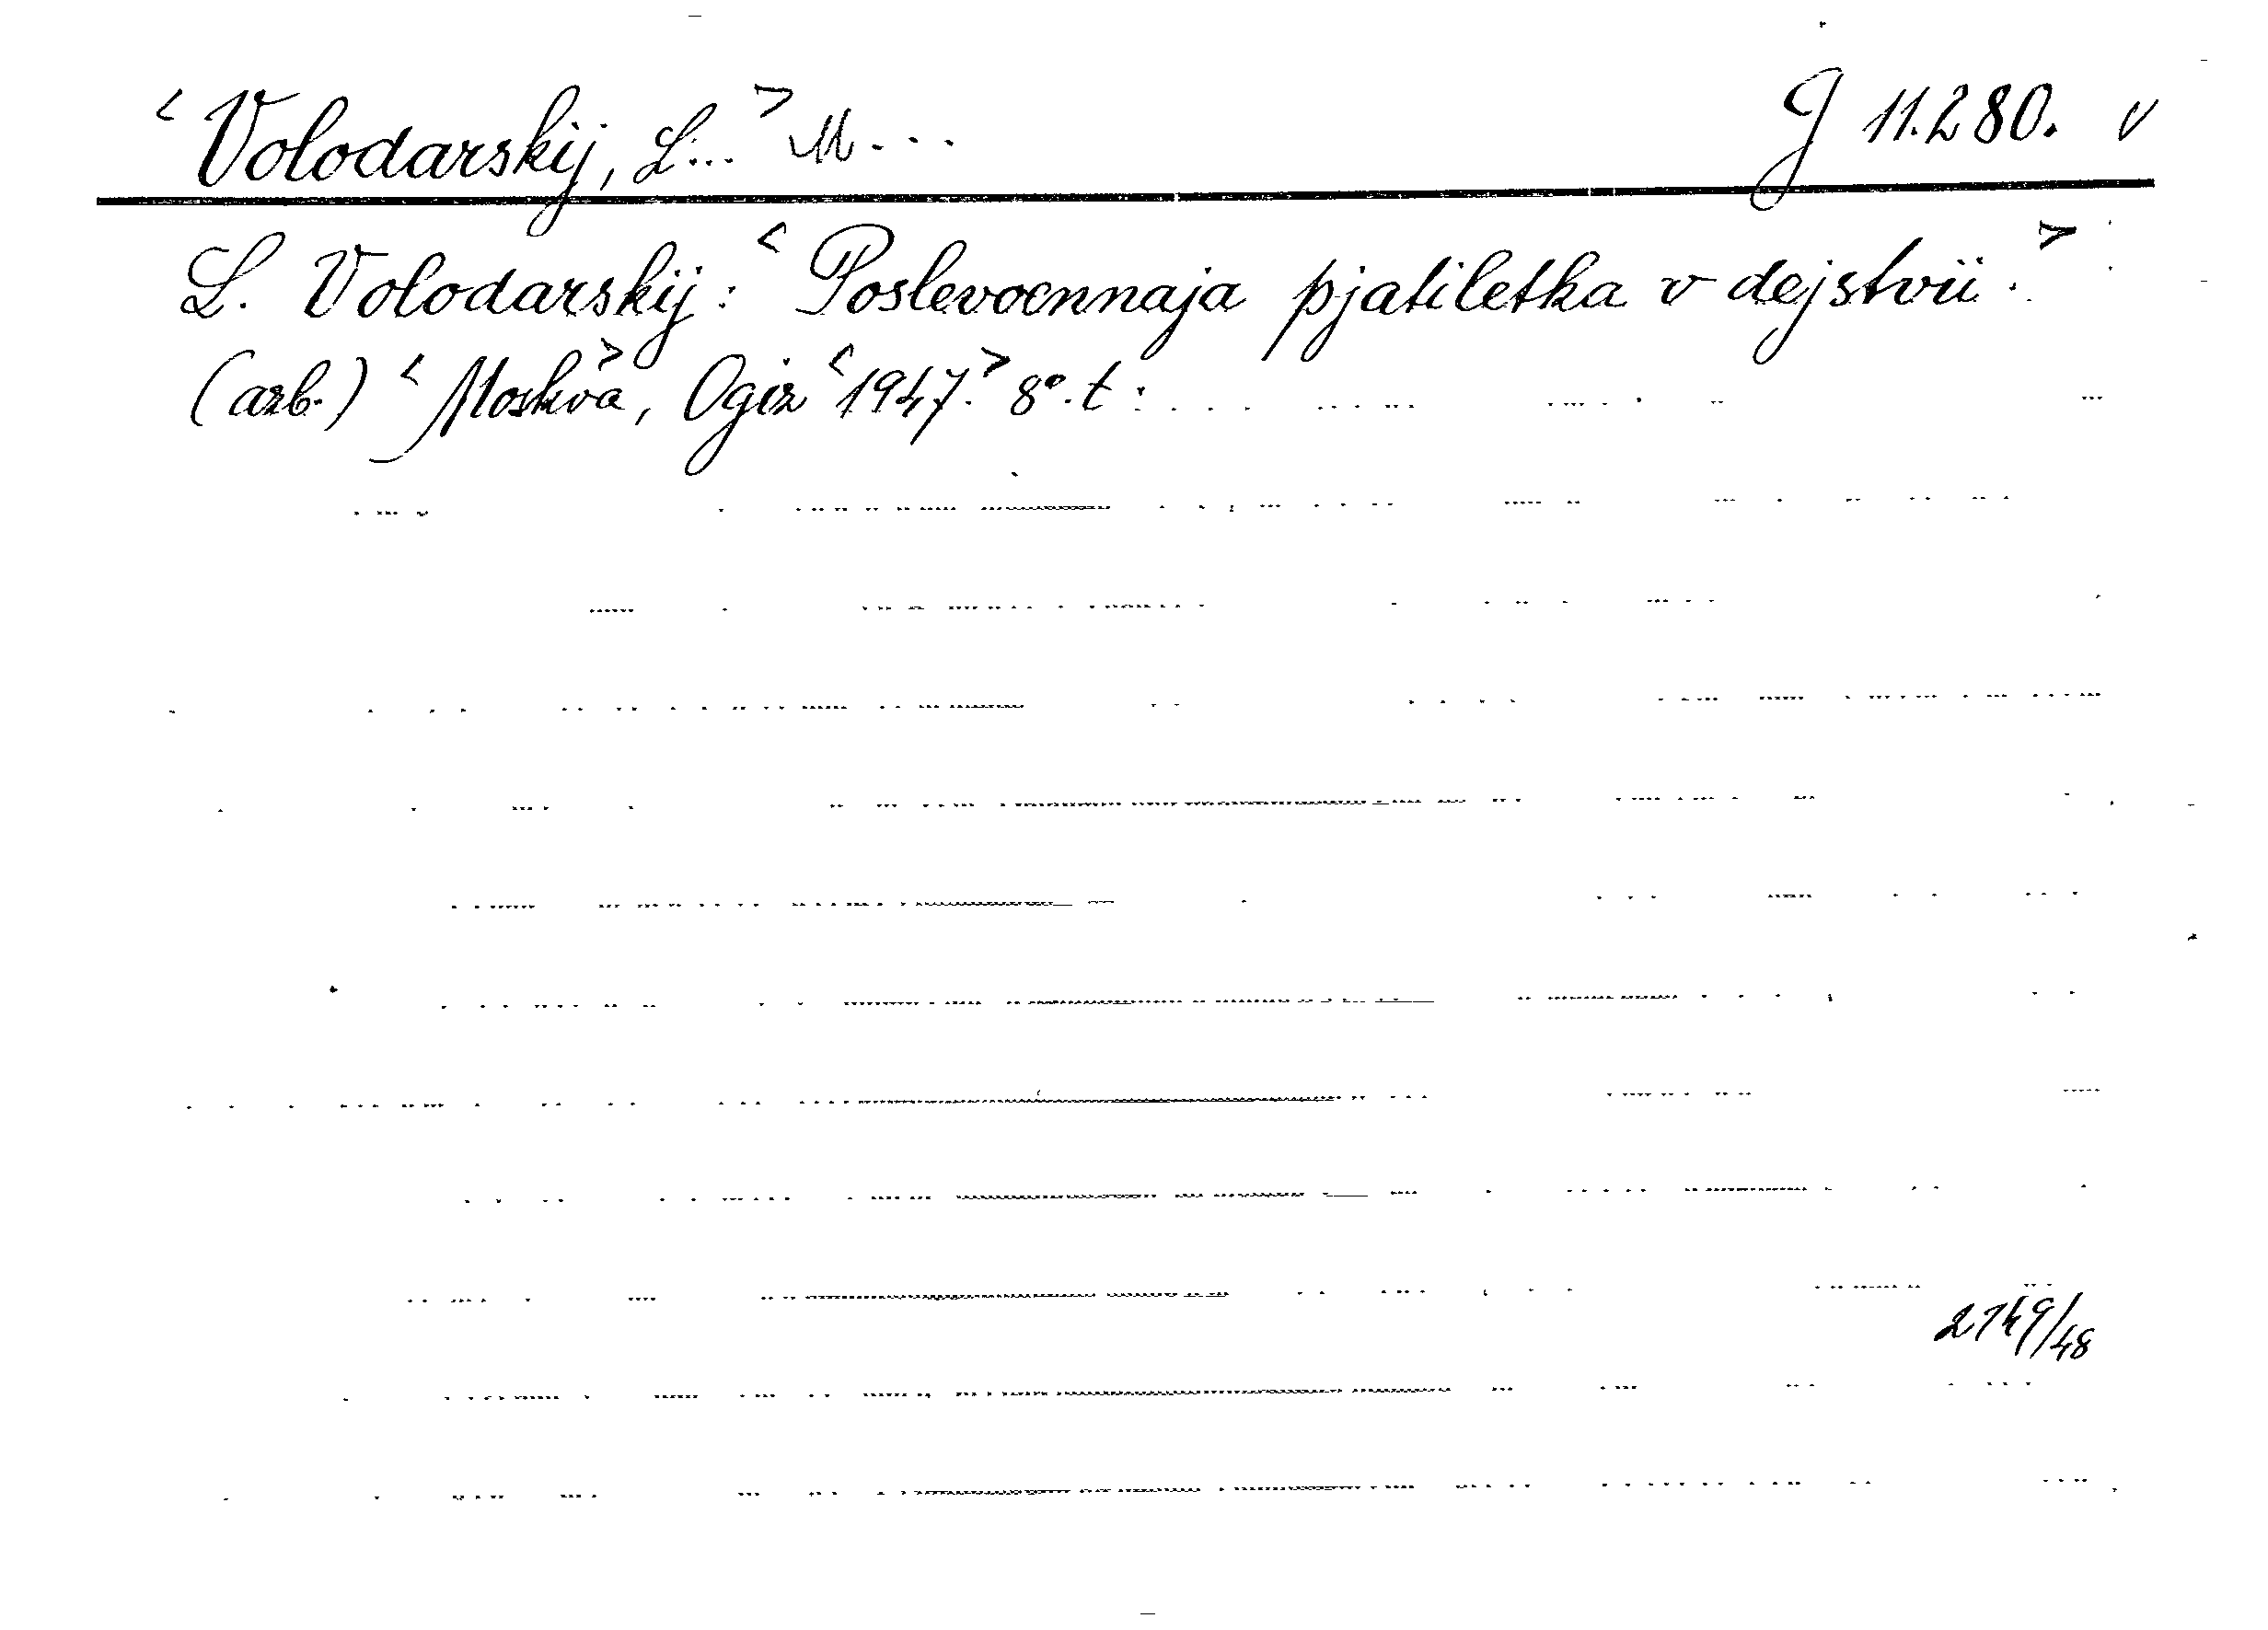 < Volodarskij, L... > M... J 11.280. v
L. Volodarskij: < Poslevoennaja pjatiletka v dejstvii. >
(azb.) < Moskva >, Ogiz < 1947. > 8°. t:
2149/48